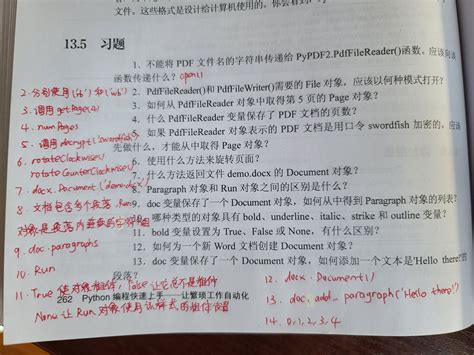 文件。这些格式是设计给计算机使用的，
13.5 习题
1．不能将 PDF 文件名的字符串传递给 PyPDF2.PdfFileReader()函数。应该向该
函数传递什么？ open()
2．PdfFileReader()和 PdfFileWriter()需要的 File 对象，应该以何种模式打开？
3．如何从 PdfFileReader 对象中取得第 5 页的 Page 对象？
4．什么 PdfFileReader 变量保存了 PDF 文档的页数？
5．如果 PdfFileReader 对象表示的 PDF 文档是用口令 swordfish 加密的，应该
先做什么，才能从中取得 Page 对象？
6．使用什么方法来旋转页面？
7．什么方法返回文件 demo.docx 的 Document 对象？
8．Paragraph 对象和 Run 对象之间的区别是什么？
9．doc 变量保存了一个 Document 对象，如何从中得到 Paragraph 对象的列表？
10．哪种类型的对象具有 bold、underline、italic、strike 和 outline 变量？
11．bold 变量设置为 True、False 或 None，有什么区别？
12．如何为一个新 Word 文档创建 Document 对象？
13．doc 变量保存了一个 Document 对象，如何添加一个文本是'Hello there!'的
段落？
2. 分别使用('rb')和('wb')
3. 调用getPage(4)
4. numPages
5. 调用decrypt('swordfish')
6. rotateClockwise()
rotateCounterClockwise()
7. docx.Document('demo.docx')
8. 文档包含多个段落.Run
对象是段落内连续的字符组
9. doc.paragraphs
10. Run
11. True 使对象粗体，False 让它总不是粗体
None 让 Run 对象使用该样式的粗体设置
12. docx.Document()
13. doc.add_paragraph('Hello there!')
14. 0,1,2,3,4
262 Python 编程快速上手——让繁琐工作自动化